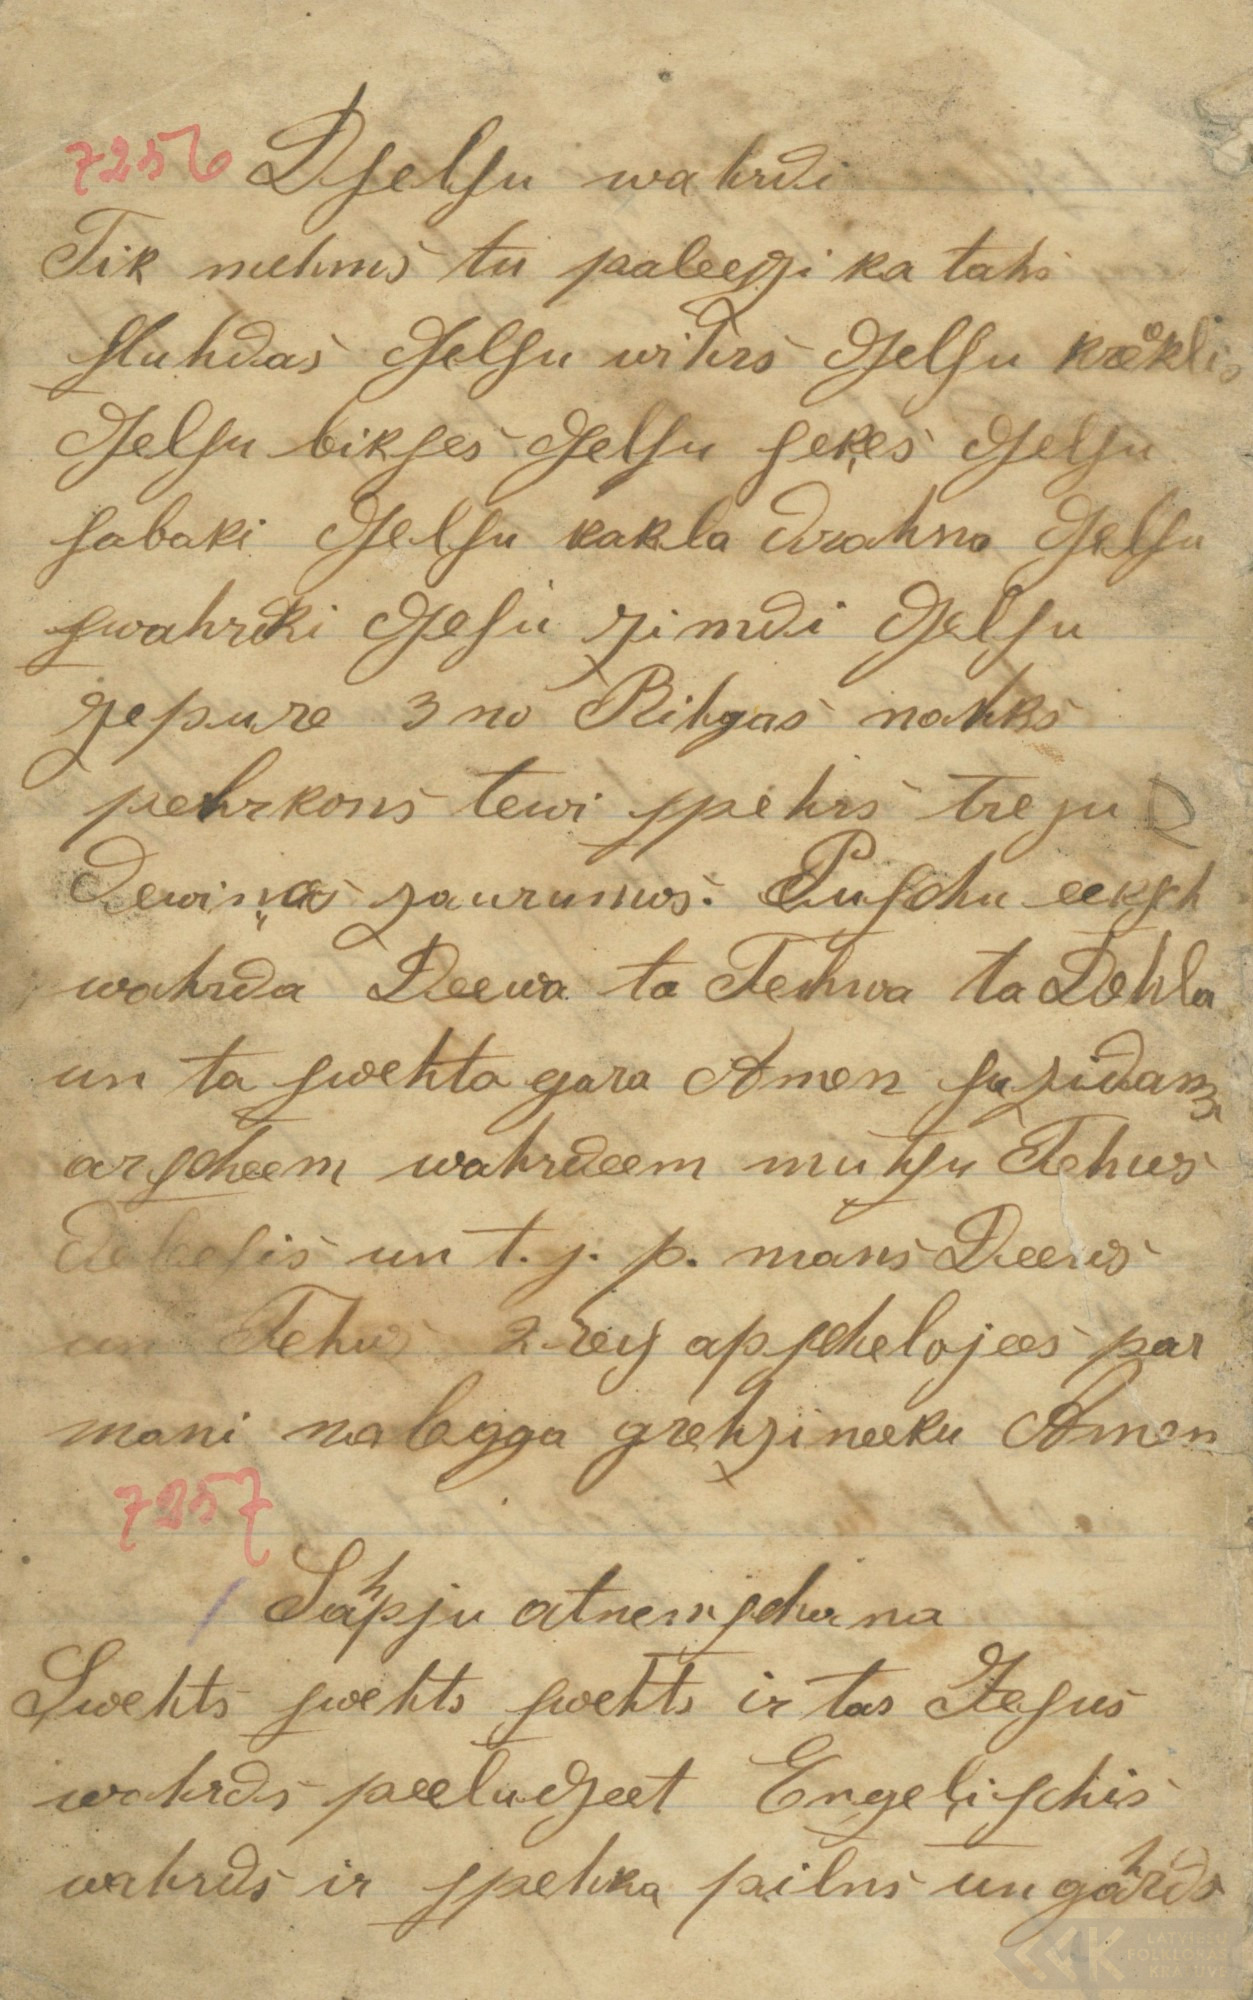 7256 Dſelſu wahrdi
Tik mehms tu paleezi ka tahs
ſluhdas dſelſu wihrs dſelſu kreklis
dſelſu bikſes dſelſu ſeķes dſelſu
ſabaki dſelſu kakla drahna dſelſu
ſwahrki dſeſu zimdi dſelſu
zepure 3 no Rihgas nahks
pehrkons tewi ſpehrs treju
dewiņos zaurumos. Puſchu eekſch
wahrda Deewa ta Tehwa ta Dehla
un ta ſwehta gara Amen ſazidams
ar ſcheem wahrdeem muhſu Tehws
Debeſis un t. j. p. mans Deews
un Tehws 2 reiſ apſchelojees par
mani nabagga grehzineeku Amen
7257
Sahpju atnemſchana
Swehts ſwehts ſwehts ir tas Jeſus
wahrds peeludzeet Engeliſchis
wahrds ir ſpehka pilns un gahrds
LATVIEŠU
FOLKLORAS
KRĀTUVE